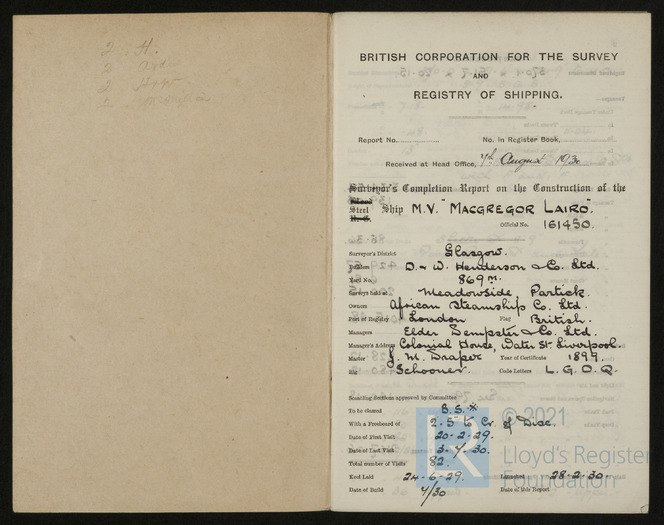 2 H.
BRITISH CORPORATION FOR THE SURVEY
AND
REGISTRY OF SHIPPING.
Report No. No. in Register Book,
Received at Head Office, 7th August 1930
Surveyor's Completion Report on the Construction of the
Steel Ship M.V. "MACGREGOR LAIRD".
Official No. 161450.
Surveyor's District Glasgow.
Builders D. & W. Henderson & Co. Ltd.
Yard No. 869M.
Surveys held at Meadowside Partick.
Owners African Steamship Co. Ltd.
Port of Registry London Flag British.
Managers Elder Dempster & Co. Ltd.
Manager's Address Colonial House, Water St. Liverpool.
Master J. M. Draper Year of Certificate 1899.
Rig Schooner. Code Letters L.G.O.Q.
Scantling Sections approved by Committee
To be classed B.S.*
With a Freeboard of 2-5 to Cr. of Disc.
Date of First Visit 20-2-29.
Date of Last Visit 3-4-30.
Total number of Visits 82.
Keel Laid 24-6-29. Launched 28-2-30.
Date of Build 4/30 Date of this Report
© 2021
Lloyd's Register
Foundation